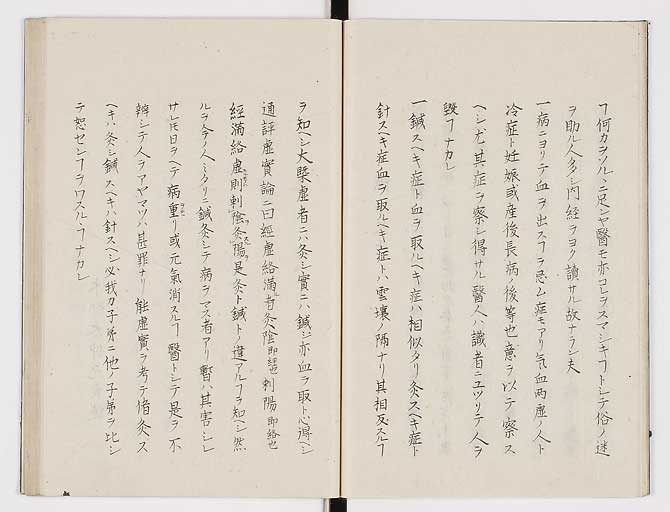 ヿ何カヲソルヽニ足ンヤ醫モ亦コレヲスマシキヿトシテ俗ノ迷
ヲ助ル人多シ内経ヲヨク讀サル故ナラン夫
一病ニヨリテ血ヲ出スヿヲ忌ム症モアリ気血両虚ノ人ト
冷症ト妊娠或産後長病後等也意ヲ以テ察ス
ヘシ尤其症ヲ察シ得サル醫人ハ識者ニユツリテ人ヲ
毀フナカレ
一鍼スヘキ症ト血ヲ取ルヘキ症ハ相似タリ灸スヘキ症ト
針スヘキ症血ヲ取ルヘキ症トハ雲壌ノ隔ナリ其相反スルヿ
ヲ知ヘシ大槩虚者ニハ灸シ實ニハ鍼シ亦血ヲ取ト心得ヘシ
通評虚實論ニ曰經虚絡滿者灸陰即経也刺陽即絡也
經滿絡虚則刺陰灸陽是灸ト鍼トノ違アルヿヲ知ヘシ然
ルヲ今ノ人ミタリニ鍼灸シテ病ヲマス者アリ暫ハ其害シレ
サレ𪜈日ヲヘテ病重リ或元氣消スルヿ醫トシテ是ヲ不
辨シテ人ヲアヤマツハ甚罪ナリ能虚實ヲ考テ偖灸ス
ヘキハ灸シ鍼スヘキハ針スヘシ必我カ子弟ニ他ノ子弟ヲ比シ
テ恕センヿヲワスルヽヿナカレ